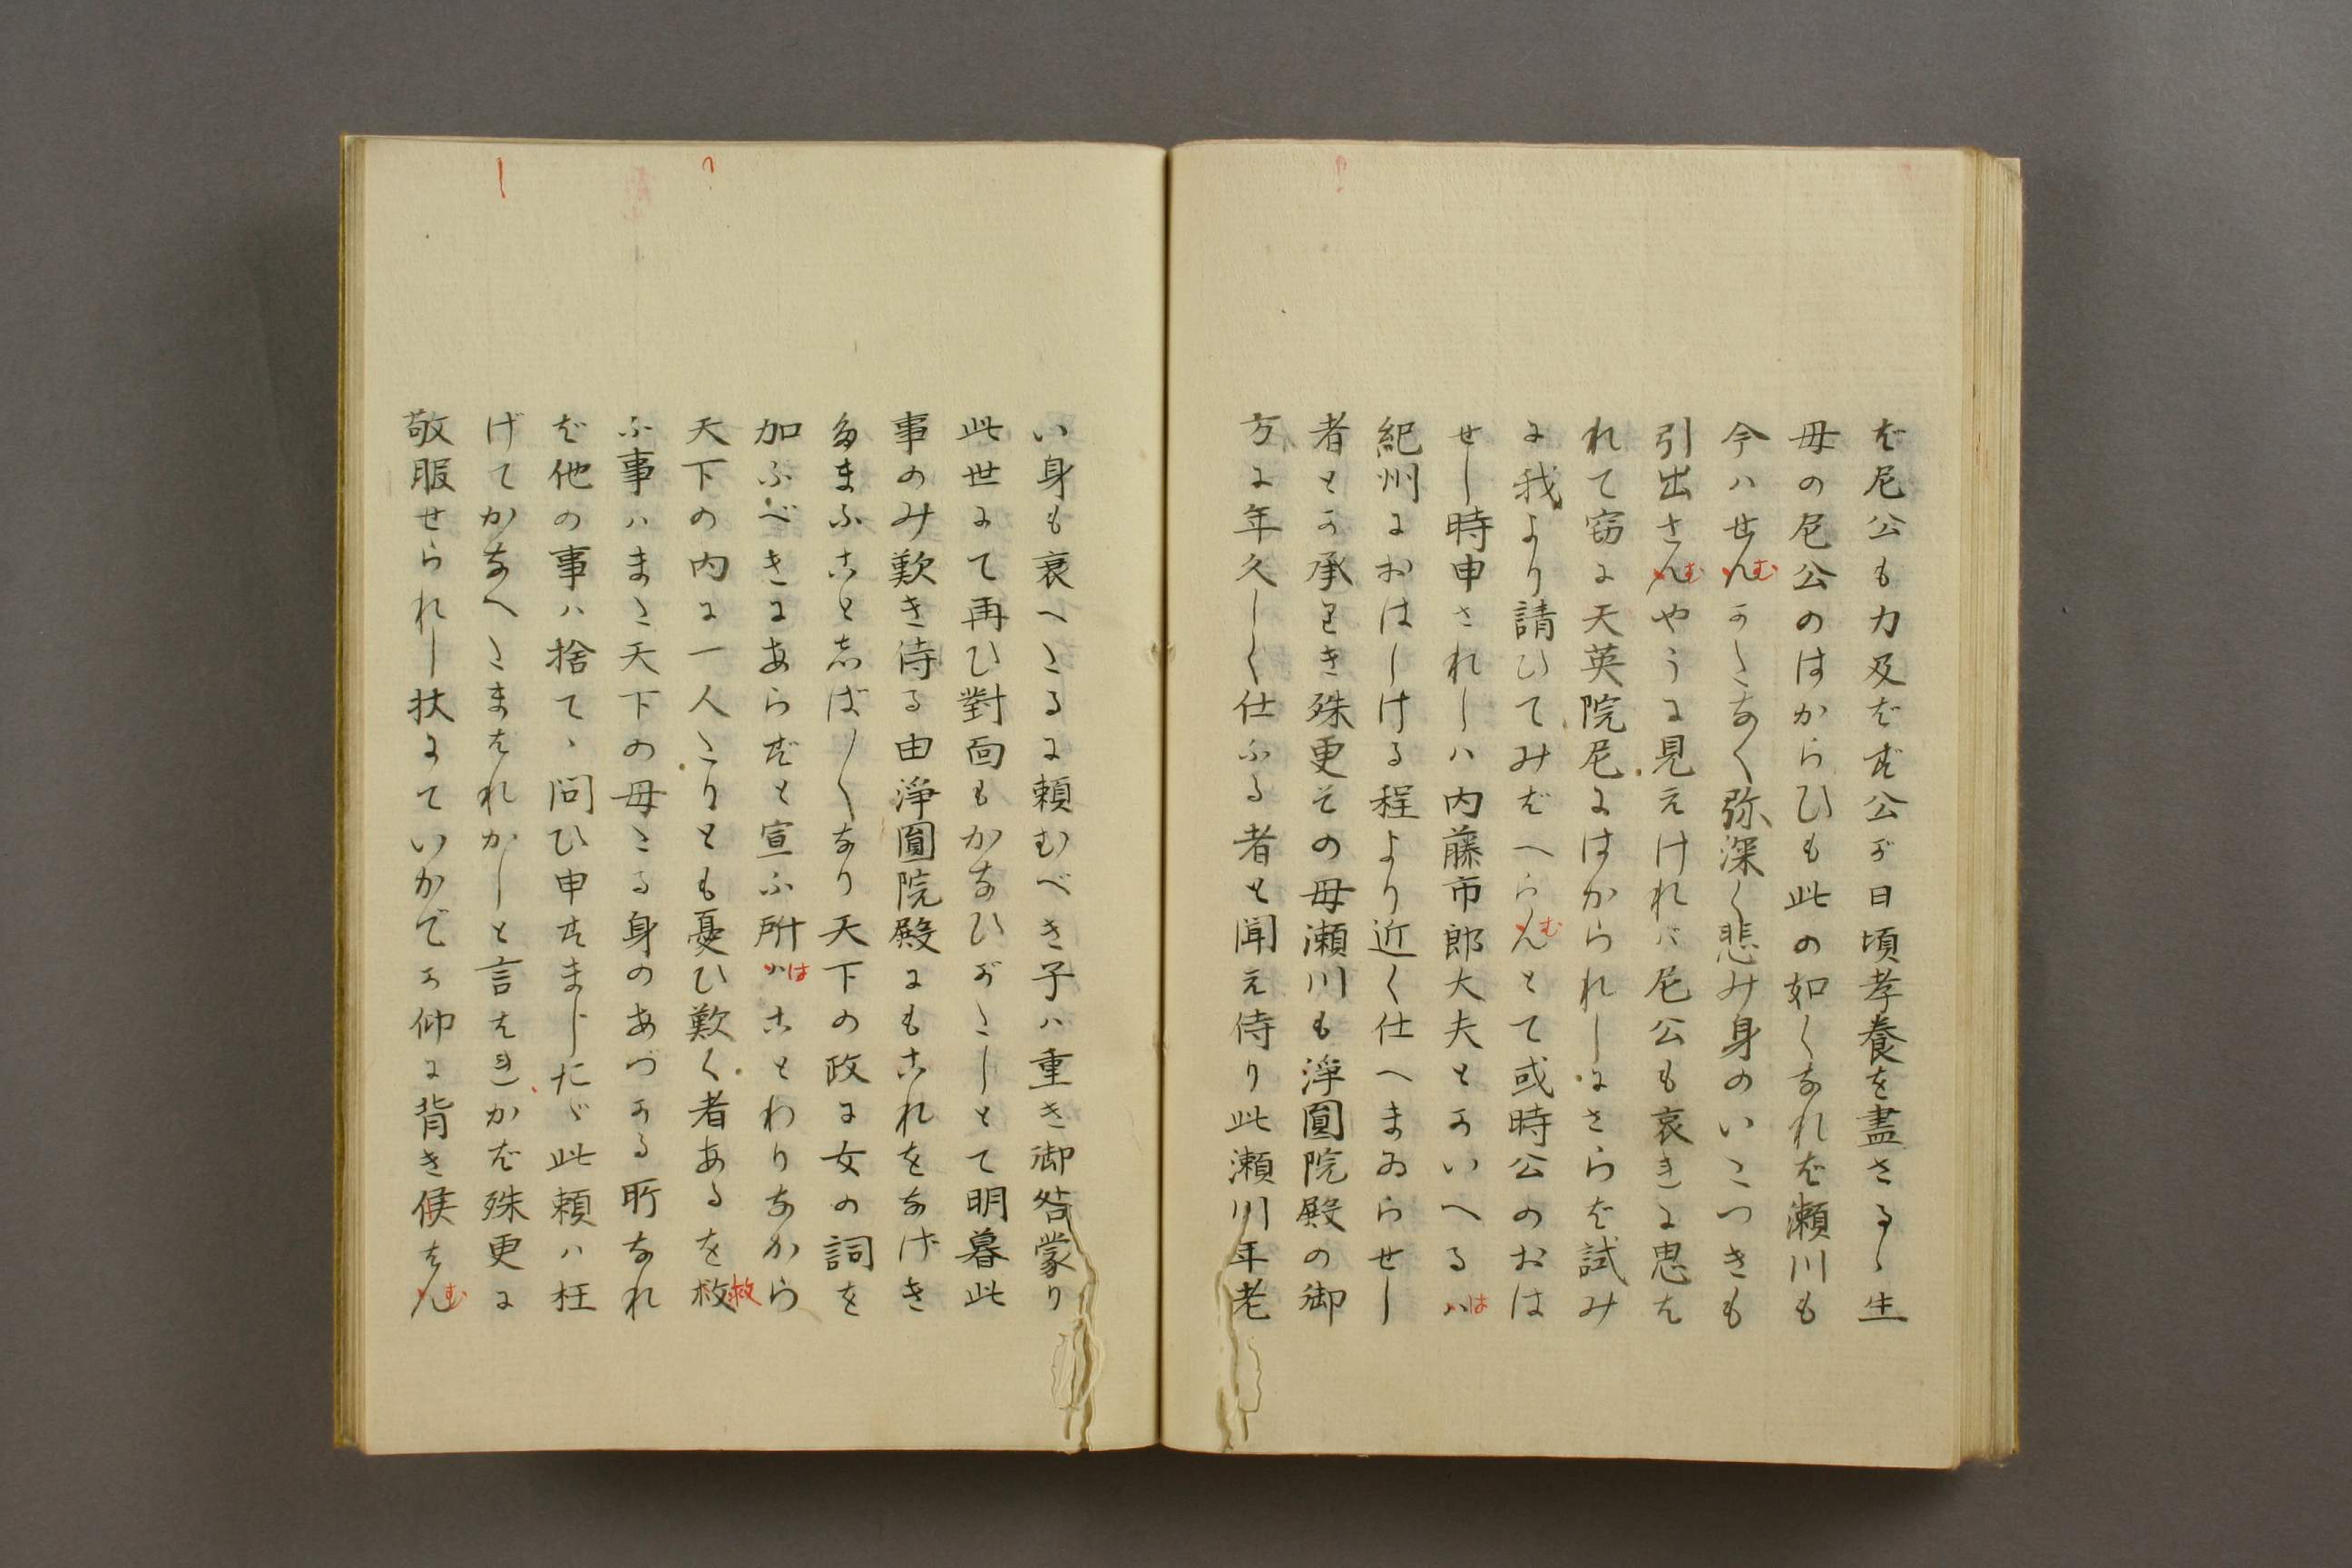 ば尼公も力及ばず公が日頃孝養を盡さるゝ生
母の尼公のはからひも此の如くなれば瀬川も
今ハせんむかたなく弥深く悲み身のいたつきも
引出さんむやうに見えけれバ尼公も哀きに思え
れて窃に天英院尼にはかられしにさらば試み
に我より請ひてみばへらんむとて或時公のおは
せし時申されしハ内藤市郎大夫とかいへるハは
紀州におはしける程より近く仕へまゐらせし
者とか承わき殊更その母瀬川も淨圓院殿の御
方に年久しく仕ふる者と聞え侍り此瀬川年老
い身も衰へたるに頼むべき子ハ重き御咎蒙り
此世にて再ひ對面もかなひがたしとて明暮此
事のみ歎き侍る由淨圓院殿にもこれをなげき
たまふこと志ばしくなり天下の政に女の詞を
加ふべきにあらずと宣ふ所ハはことわりなから
天下の内に一人たりとも憂ひ歎く者あるを救救
ふ事ハまた天下の母たる身のあづかる所なれ
ば他の事ハ捨てゝ問ひ申すまじたゞ此頼ハ枉
げてかなへたまはれかしと言はれかば殊更に
敬服せられし状にていかでか仰に背き侯はんむ